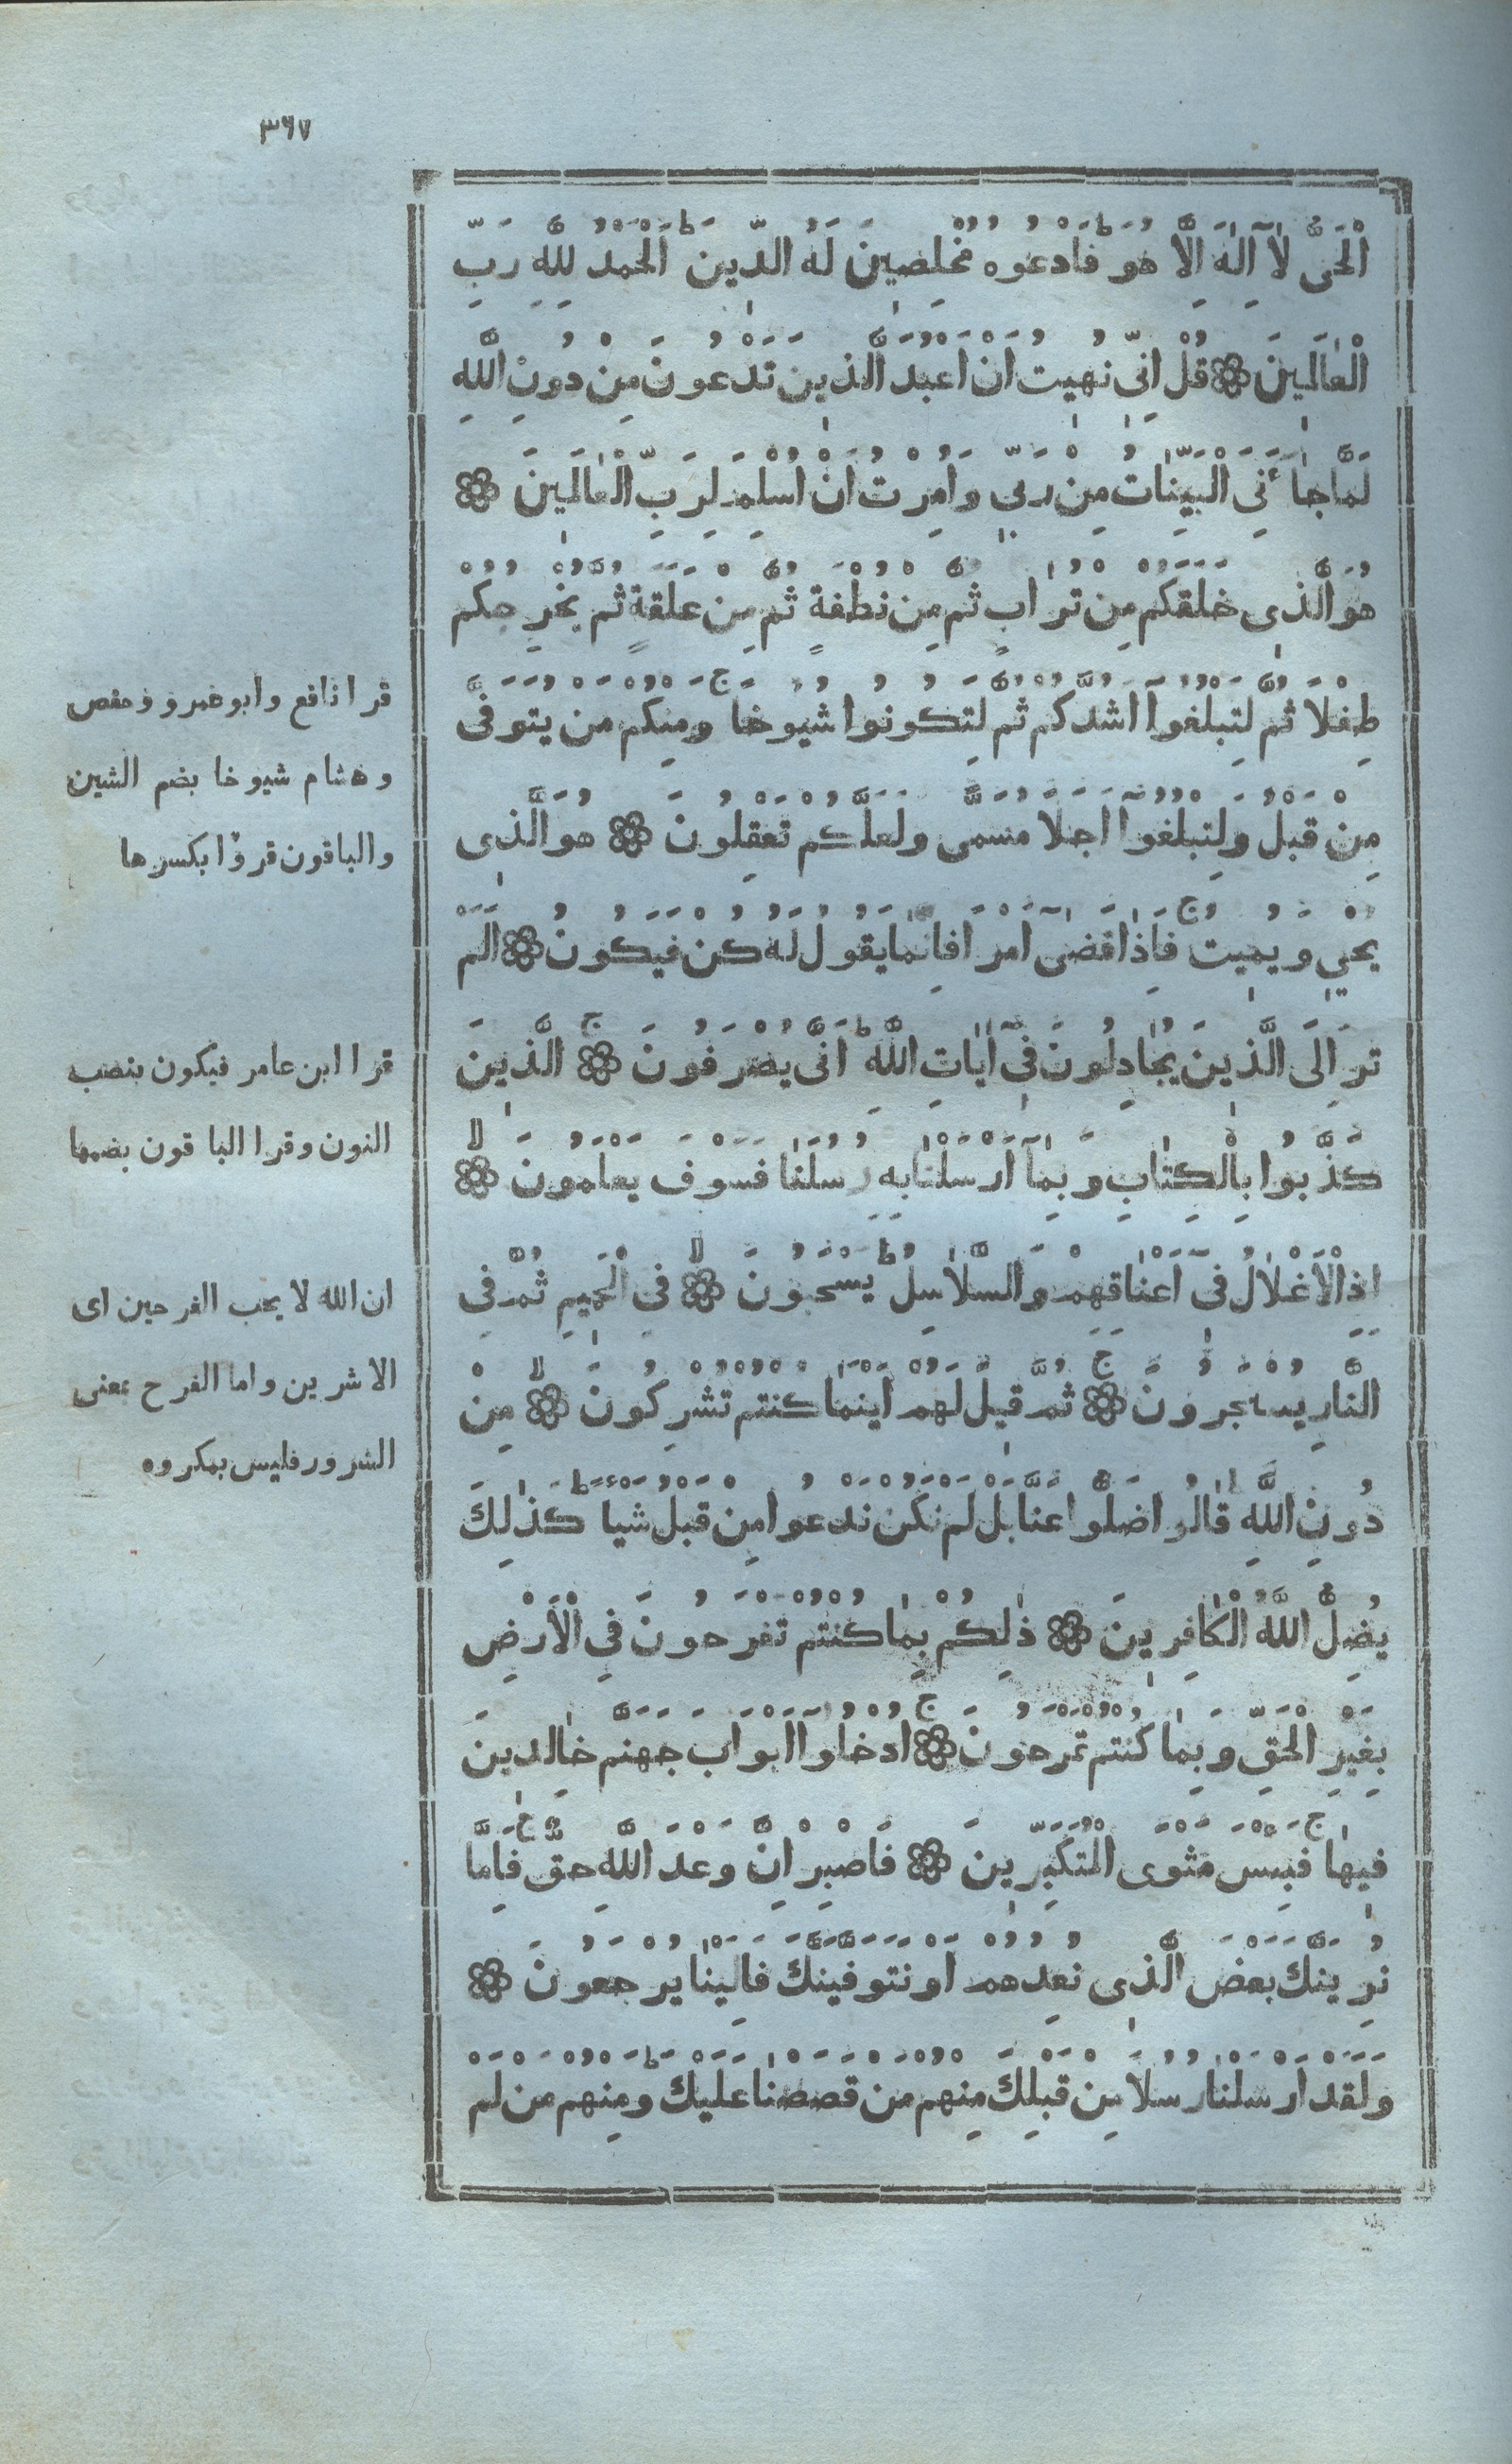 ٣٦٧
اَلْحَىُّ لَآ اِلٰهَ اِلَّا هُوَ فَادْعُوهُ مُخْلِصِينَ لَهُ الدِّينَ ط اَلْحَمْدُ لِلّٰهِ رَبِّ
الْعَالَمِينَ ۞ قُلْ اِنِّى نُهِيتُ اَنْ اَعْبُدَ الَّذِينَ تَدْعُونَ مِنْ دُونِ اللّٰهِ
لَمَّا جَاۤءَنِىَ الْبَيِّنَاتُ مِنْ رَبِّى وَاُمِرْتُ اَنْ اُسْلِمَ لِرَبِّ الْعَالَمِينَ ۞
هُوَ الَّذِى خَلَقَكُمْ مِنْ تُرَابٍ ثُمَّ مِنْ نُطْفَةٍ ثُمَّ مِنْ عَلَقَةٍ ثُمَّ يُخْرِجُكُمْ
طِفْلًا ثُمَّ لِتَبْلُغُوآ اَشُدَّكُمْ ثُمَّ لِتَكُونُوا شُيُوخًا ج وَمِنْكُمْ مَنْ يُتَوَفَّى
مِنْ قَبْلُ وَلِتَبْلُغُوآ اَجَلًا مُسَمًّى وَلَعَلَّكُمْ تَعْقِلُونَ ۞ هُوَ الَّذِى
يُحْيِى وَيُمِيتُ ج فَاِذَا قَضٰىٓ اَمْرًا فَاِنَّمَا يَقُولُ لَهُ كُنْ فَيَكُونُ ۞ اَلَمْ
تَرَ اِلَى الَّذِينَ يُجَادِلُونَ فِىٓ اٰيَاتِ اللّٰهِ ط اَنّٰى يُصْرَفُونَ ۞ ج الَّذِينَ
كَذَّبُوا بِالْكِتَابِ وَبِمَآ اَرْسَلْنَا بِهِ رُسُلَنَا فَسَوْفَ يَعْلَمُونَ ۞ لا
اِذِ الْاَغْلَالُ فِىٓ اَعْنَاقِهِمْ وَالسَّلَاسِلُ ط يُسْحَبُونَ ۞ لا فِى الْحَمِيمِ ثُمَّ فِى
النَّارِ يُسْجَرُونَ ۞ ج ثُمَّ قِيلَ لَهُمْ اَيْنَمَا كُنْتُمْ تُشْرِكُونَ ۞ لا مِنْ
دُونِ اللّٰهِ ط قَالُوا ضَلُّوا عَنَّا بَلْ لَمْ نَكُنْ نَدْعُوا مِنْ قَبْلُ شَيْـًٔا ط كَذٰلِكَ
يُضِلُّ اللّٰهُ الْكَافِرِينَ ۞ ذٰلِكُمْ بِمَا كُنْتُمْ تَفْرَحُونَ فِى الْاَرْضِ
بِغَيْرِ الْحَقِّ وَبِمَا كُنْتُمْ تَمْرَحُونَ ۞ ج اُدْخُلُوآ اَبْوَابَ جَهَنَّمَ خَالِدِينَ
فِيهَا ج فَبِئْسَ مَثْوَى الْمُتَكَبِّرِينَ ۞ فَاصْبِرْ اِنَّ وَعْدَ اللّٰهِ حَقٌّ ج فَاِمَّا
نُرِيَنَّكَ بَعْضَ الَّذِى نَعِدُهُمْ اَوْ نَتَوَفَّيَنَّكَ فَاِلَيْنَا يُرْجَعُونَ ۞
وَلَقَدْ اَرْسَلْنَا رُسُلًا مِنْ قَبْلِكَ مِنْهُمْ مَنْ قَصَصْنَا عَلَيْكَ ط وَمِنْهُمْ مَنْ لَمْ
قرا نافع وابو عمرو وحفص
وهشام شيوخا بضم الشين
والباقون قرؤا بكسرها
قرا ابن عامر فيكون بنصب
النون وقرا الباقون بضمها
ان الله لا يحب الفرحين اى
الاشرين واما الفرح بمعنى
السرور فليس بمكروه